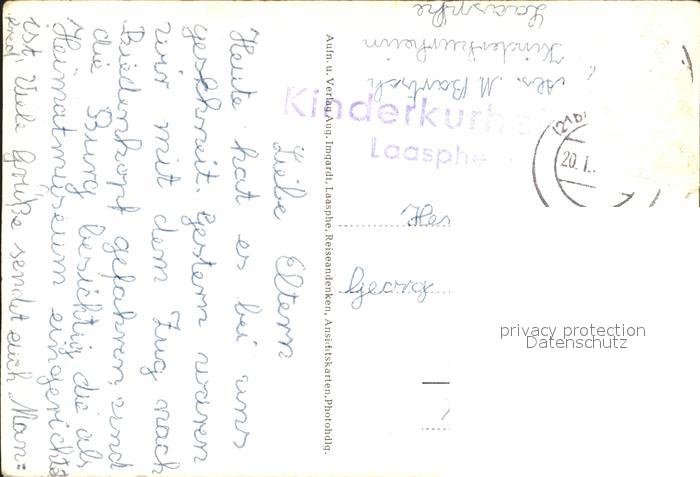 Liebe Eltern
Heute hat es bei uns
geschneit. Gestern waren
wir mit dem Zug nach
Biedenkopf gefahren, und
die Burg besichtig die als
Heimatmuseum eingerichtet
ist. Viele Grüße sendet euch Man=
fred
Aufn. u. Verlag Aug. Imgardt, Laasphe, Reiseandenken, Ansichtskarten, Photohdlg.
Abs. M. Bartsch
Kinderkurheim
Laasphe
Kinderkurh
Laasphe
(21b)
20. 1.
Her
Georg
privacy protection
Datenschutz